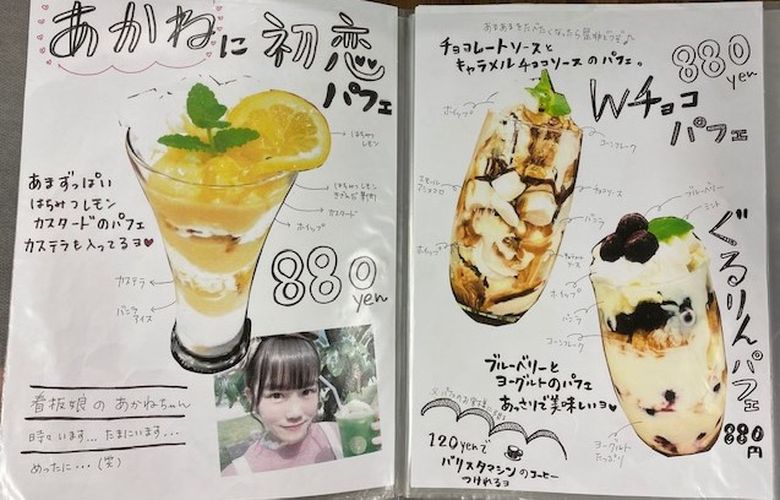 あかねに初恋
パフェ
はちみつ
レモン
はちみつレモン
カスタード
ホイップ
あまずっぱい
はちみつレモン
カスタードのパフェ
カステラも入ってるヨ♥
カステラ
バニラ
アイス
880
yen
看板娘のあかねちゃん
時々います…たまにいます…
めったに…(笑)
チョコレートソースと
キャラメルチョコソースのパフェ。
880
yen
Wチョコ
パフェ
ホイップ
コーンフレーク
チョコソース
バニラ
ホイップ
ソース
ホイップ
バニラ
コーンフレーク
ブルーベリー
ミント
ぐるりんパフェ
880
円
ブルーベリーと
ヨーグルトのパフェ
あっさりで美味しいヨ♥
ヨーグルト
たっぷり
120yenで
バリスタマシンのコーヒー
つけれるヨ